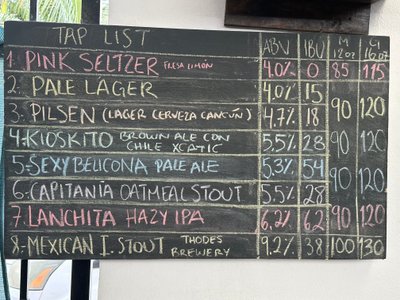 TAP LIST ABV IBU M 12oz G 16oz
1. PINK SELTZER FRESA LIMÓN 4.0% 0 85 115
2. PALE LAGER 4.0% 15
3. PILSEN (LAGER CERVEZA CANCÚN) 4.7% 18 90 120
4. KIOSKITO BROWN ALE CON CHILE XCATIC 5.5% 28 90 120
5. SEXY BELICONA PALE ALE 5.3% 54
6. CAPITANIA OATMEAL STOUT 5.5% 28 90 120
7. LANCHITA HAZY IPA 6.2% 62 90 120
8. MEXICAN I. STOUT THODES BREWERY 9.2% 38 100 130